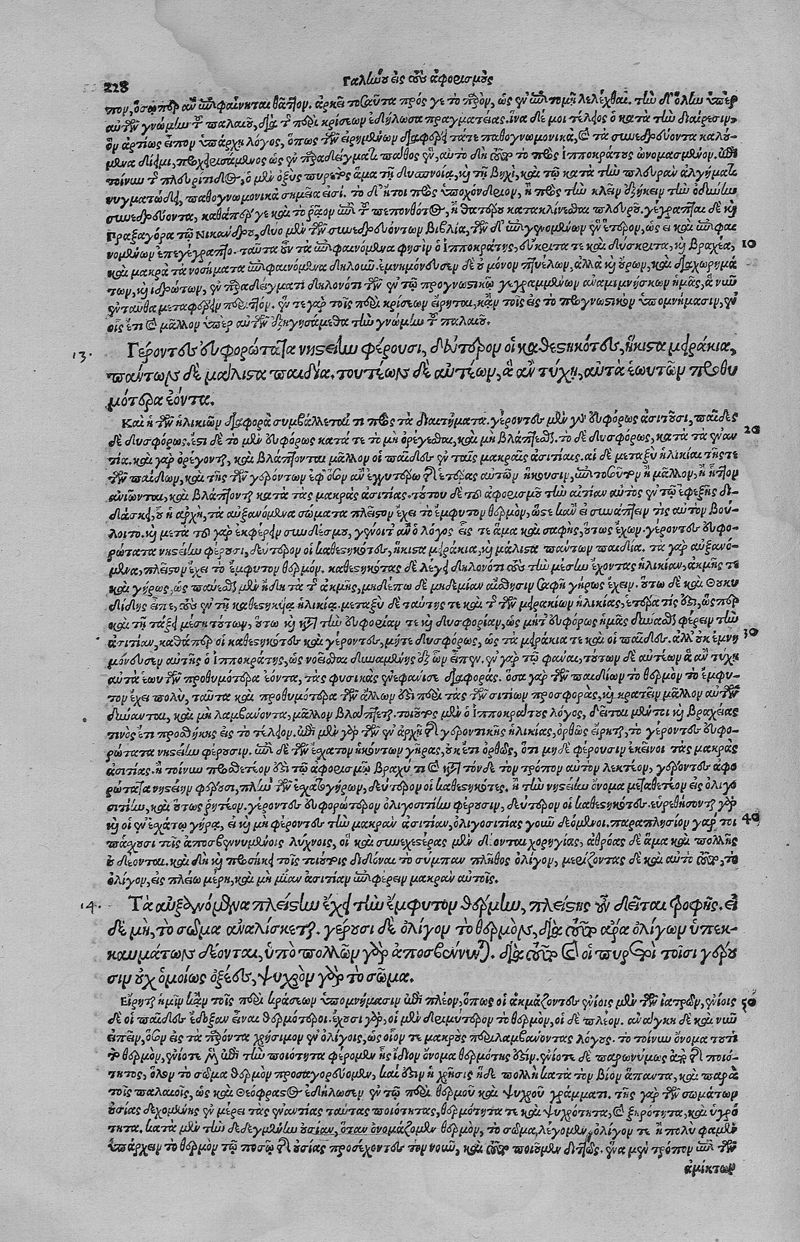 228 Γαληνοῦ εἰς τοὺς ἀφορισμοὺς
που, ὅσωπερ ἂν ἐπιφαίνηται θᾶττον. ἀρκεῖ τοσαῦτα πρός γε τὸ παρὸν, ὡς ἐν ἐπιτομῇ λελέχθαι. τὴν δ' ὅλην ὑπὲρ
αὐτῶν γνώμην τοῦ παλαιοῦ, διὰ τῆς περὶ κρίσεων ἐδήλωσα πραγματείας. ἵνα δέ μοι τέλεος ὁ κατὰ τὴν διαίρεσιν
ὃν ἀρτίως εἶπον ὑπάρχῃ λόγος, ὅπως τῶν εἰρημένων διαφέρῃ τά τε παθογνωμονικὰ, καὶ τὰ συνεδρεύοντα καλού-
μενα δίειμι, προχειρισάμενος ὡς ἐν παραδείγματι πάθος ἓν, αὐτὸ δὴ τοῦτο τὸ πρὸς Ἱπποκράτους ὠνομασμένον. ἐπὶ
τοίνυν τοῦ πλευρίτιδος, ὁ μὲν ὀξὺς πυρετὸς ἅμα τῇ δυσπνοίᾳ, καὶ τῇ βηχὶ, καὶ τῷ κατὰ τὴν πλευρὰν ἀλγήματι
νυγματώδει, παθογνωμονικὰ σημεῖά εἰσι. τὸ δ' ἤτοι πρὸς ὑποχόνδριον, ἢ πρὸς τὴν κλεῖν διήκειν τὴν ὀδύνην
συνεδρεύοντα, καθάπερ γε καὶ τὸ ῥᾷον ἐπὶ τοῦ πεπονθότος, ἢ θατέρου κατακλίνεσθαι πλευροῦ. γέγραπται δὲ καὶ
Πραξαγόρᾳ τῷ Νικάνδρου, δύο μὲν τῶν συνεδρευόντων βιβλία, τῶν δ' ἐπιγινομένων ἓν ἕτερον, ὡς εἰ καὶ ἐπιφαι
νομένων ἐπεγέγραπτο. ταῦτα οὖν τὰ ἐπιφαινόμενα φησὶν ὁ Ἱπποκράτης, εὔκριτά τε καὶ δύσκριτα, καὶ βραχέα, 10
καὶ μακρὰ τὰ νοσήματα ἐπιφαινόμενα δηλοῦν. ἐμνημόνευσεν δὲ οὐ μόνον πτυέλων, ἀλλὰ καὶ οὔρων, καὶ διαχωρημά
των, καὶ ἱδρώτων, ἐν παραδείγματι δηλονότι τῶν ἐν τῷ προγνωστικῷ γεγραμμένων ἀναμιμνήσκων ἡμᾶς, ἃ νῦν
ἐνταῦθα μεταφέρειν περιττόν. ἔν τε γὰρ τοῖς περὶ κρίσεων εἴρηται, κἀν τοῖς εἰς τὸ προγνωστικὸν ὑπομνήμασιν, ἐν
οἷς ἔτι καὶ μᾶλλον ὑπὲρ αὐτῶν ἐξηγησάμεθα τὴν γνώμην τοῦ παλαιοῦ.
13. Γέροντες εὐφορώτατα νηστείην φέρουσι, δεύτερον οἱ καθεστηκότες, ἥκιστα μειράκια,
πάντων δὲ μάλιστα παιδία. τουτέων δὲ αὐτέων, ἃ ἂν τύχῃ, αὐτὰ ἑωυτῶν προθυ
μότερα ἐόντα.
Καὶ ἡ τῶν ἡλικιῶν διαφορὰ συμβάλλεταί τι πρὸς τὰ διαιτήματα. γέροντες μὲν γὰρ εὐφόρως ἀσιτοῦσι, παῖδες
δὲ δυσφόρως. ἔστι δὲ τὸ μὲν εὐφόρως κατά τε τὸ μὴ ὀρέγεσθαι, καὶ μὴ βλάπτεσθαι. τὸ δὲ δυσφόρως, κατὰ τὰ ἐναν 20
τία. καὶ γὰρ ὀρέγονται, καὶ βλάπτονται μᾶλλον οἱ παῖδες ἐν ταῖς μακραῖς ἀσιτίαις. αἱ δὲ μεταξὺ ἡλικίαι τῆς τε
τῶν παίδων, καὶ τῆς τῶν γερόντων ἐφ' ὅσον ἂν ἐγγυτέρω τῆς ἑτέρας αὐτῶν ἥκουσιν, ἐπὶ τοσοῦτον ἢ μᾶλλον, ἢ ἧττον
ἀνιῶνται, καὶ βλάπτονται κατὰ τὰς μακρὰς ἀσιτίας. τούτου δὲ τοῦ ἀφορισμοῦ τὴν αἰτίαν αὐτὸς ἐν τῷ ἐφεξῆς δι-
δάσκει, οὗ ἡ ἀρχὴ, τὰ αὐξανόμενα σώματα πλεῖστον ἔχει τὸ ἔμφυτον θερμὸν, ὥστε κἂν εἰ συνάπτειν τις αὐτὸν βού-
λοιτο, καὶ μετὰ τοῦ γὰρ ἐκφέρειν συνδέσμου, γένοιτ' ἂν ὁ λόγος εἷς τε ἅμα καὶ σαφὴς, οὕτως ἔχων. γέροντες εὐφο-
ρώτατα νηστείην φέρουσι, δεύτερον οἱ καθεστηκότες, ἥκιστα μειράκια, καὶ μάλιστα πάντων παιδία. τὰ γὰρ αὐξανό-
μενα, πλεῖστον ἔχει τὸ ἔμφυτον θερμόν. καθεστηκότας δὲ λέγει δηλονότι τοὺς τὴν μέσην ἔχοντας ἡλικίαν, ἀκμῆς τε
καὶ γήρως, ὡς πεπαῦσθαι μὲν ἤδη τὰ τῆς ἀκμῆς, μηδέπω δὲ μηδεμίαν αἴσθησιν σαφῆ γήρως ἔχειν. οὕτω δὲ καὶ Θουκυ
δίδης εἶπε, τοὺς ἐν τῇ καθεστηκυίᾳ ἡλικίᾳ. μεταξὺ δὲ ταύτης τε καὶ τῆς τῶν μειρακίων ἡλικίας, ἑτέρα τίς ἐστι, ὥσπερ
καὶ τῇ τάξει μέση τούτων, οὕτω καὶ κατὰ τὴν εὐφορίαν τε καὶ δυσφορίαν, ὡς μήτ' εὐφόρως ἡμᾶς δύνασθαι φέρειν τὴν 30
ἀσιτίαν, καθάπερ οἱ καθεστηκότες καὶ γέροντες, μήτε δυσφόρως, ὡς τὰ μειράκιά τε καὶ οἱ παῖδες. ἀλλ' οὐκ ἐμνη
μόνευσεν αὐτῆς ὁ Ἱπποκράτης, ὡς νοεῖσθαι δυναμένης ἐξ ὧν εἶπεν. ἐν γὰρ τῷ φάναι, τούτων δὲ αὐτέων ἃ ἂν τύχῃ
αὐτὰ ἑωυτῶν προθυμότερα ἐόντα, τὰς φυσικὰς ἐνέφαινε διαφοράς. ὅσα γὰρ τῶν παιδίων τὸ θερμὸν τὸ ἔμφυ-
τον ἔχει πολὺ, ταῦτα καὶ προθυμότερα τῶν ἄλλων ἐστὶ περὶ τὰς τῶν σιτίων προσφορὰς, καὶ κρατεῖν μᾶλλον αὐτῶν
δύνανται, καὶ μὴ λαμβάνοντα, μᾶλλον βλάπτεται. τοιοῦτος μὲν ὁ Ἱπποκράτους λόγος, δεῖται μέντοι καὶ βραχείας
τινὸς ἔτι προσθήκης εἰς τὸ τέλειον. ἐπὶ μὲν γὰρ τῶν ἐν ἀρχῇ τῆς γεροντικῆς ἡλικίας, ὀρθῶς εἴρηται, τὸ γέροντες εὐφο-
ρώτατα νηστείην φέρουσιν. ἐπὶ δὲ τῶν εἰς ἔσχατον ἡκόντων γήρας, οὐκέτι ὀρθῶς, ὅτι μὴ δὲ φέρουσιν ἐκεῖνοι τὰς μακρὰς
ἀσιτίας. ἢ τοίνυν προσθετέον ἐστὶ τῷ ἀφορισμῷ βραχύ τι καὶ κατὰ τόνδε τὸν τρόπον αὐτὸν λεκτέον, γέροντες εὐφο
ρώτατα νηστείην φέρουσιν, πλὴν τῶν ἐσχατογήρων, δεύτερον οἱ καθεστηκότες. ἢ τὴν νηστείην ὄνομα μεταθετέον εἰς ὀλιγο
σιτίην, καὶ οὕτως ῥητέον. γέροντες εὐφορώτερον ὀλιγοσιτίην φέρουσιν, δεύτερον οἱ καθεστηκότες. εὑρεθήσονται γὰρ
καὶ οἱ ἐν ἐσχάτῳ γήρᾳ, εἰ καὶ μὴ φέροντες τὴν μακρὰν ἀσιτίαν, ὀλιγοσιτίας γοῦν δεόμενοι. παραπλήσιον γάρ τι 40
πάσχουσι τοῖς ἀποσβεννυμένοις λύχνοις, οἳ καὶ συνεχεστέρας μὲν δέονται χορηγίας, ἀθρόας δὲ ἅμα καὶ πολλῆς
οὐ δέονται. καὶ δὴ καὶ προσήκει τοῖς τοιούτοις διδόναι τὸ σύμπαν πλῆθος ὀλίγον, μερίζοντας δὲ καὶ αὐτὸ τοῦτο, τὸ
ὀλίγον, εἰς πλείω μέρη, καὶ μὴ μίαν ἀσιτίαν ἐπιφέρειν μακρὰν αὐτοῖς.
14. Τὰ αὐξανόμενα πλεῖστον ἔχει τὸ ἔμφυτον θερμὸν, πλείστης οὖν δεῖται τροφῆς. εἰ
δὲ μὴ, τὸ σῶμα ἀναλίσκεται. γέρουσι δὲ ὀλίγον τὸ θερμὸν, διὰ τοῦτο ἄρα ὀλίγων ὑπεκ-
καυμάτων δέονται, ὑπὸ πολλῶν γὰρ ἀποσβέννυται. διὰ τοῦτο καὶ οἱ πυρετοὶ τοῖσι γέρου
σιν οὐχ ὁμοίως ὀξέες, ψυχρὸν γὰρ τὸ σῶμα.
Εἴρηται ἡμῖν κἀν τοῖς περὶ κράσεων ὑπομνήμασιν ἐπὶ πλέον, ὅπως οἱ ἀκμάζοντες ἐνίοις μὲν τῶν ἰατρῶν, ἐνίοις 50
δὲ οἱ παῖδες ἔδοξαν εἶναι θερμότεροι. ἔχουσι γὰρ, οἱ μὲν δριμύτερον τὸ θερμὸν, οἱ δὲ πλέον. ἀνάγκη δὲ καὶ νῦν
εἰπεῖν, ὅσον εἰς τὰ παρόντα χρήσιμον ἐν ὀλίγοις, ὡς οἷόν τε μακροὺς περιλαμβάνοντας λόγους. τὸ τοίνυν ὄνομα τουτὶ
τὸ θερμὸν, ἐνίοτε μὲν ἐπὶ τὴν ποιότητα φέρομεν ἧς ἴδιον ὄνομα θερμότης ἐστίν. ἐνίοτε δὲ παρωνύμως ἀπὸ τῆς ποιό-
τητος, ὅλον τὸ σῶμα θερμὸν προσαγορεύομεν, καὶ ἔστιν ἡ χρῆσις ἥδε πολλὴ κατὰ τὸν βίον ἅπαντα, καὶ παρὰ
τοῖς παλαιοῖς, ὡς καὶ Θεόφραστος ἐδήλωσεν ἐν τῷ περὶ θερμοῦ καὶ ψυχροῦ γράμματι. τῆς γὰρ τῶν σωμάτων
οὐσίας δεχομένης ἐν μέρει τὰς ἐναντίας ταύτας ποιότητας, θερμότητά τε καὶ ψυχρότητα, καὶ ξηρότητα, καὶ ὑγρό
τητα. κατὰ μὲν τὴν δεδεγμένην οὐσίαν, ὅταν ὀνομάζομεν θερμὸν, τὸ σῶμα, λέγομεν, ὀλίγον τε ἢ πολὺ φαμὲν
ὑπάρχειν τὸ θερμὸν τῷ ποσῷ τῆς οὐσίας προσέχοντες τὸν νοῦν, καὶ τοῦτο ποιοῦμεν διττῶς. ἕνα μὲν τρόπον ἐπὶ τῶν
ἀμίκτων